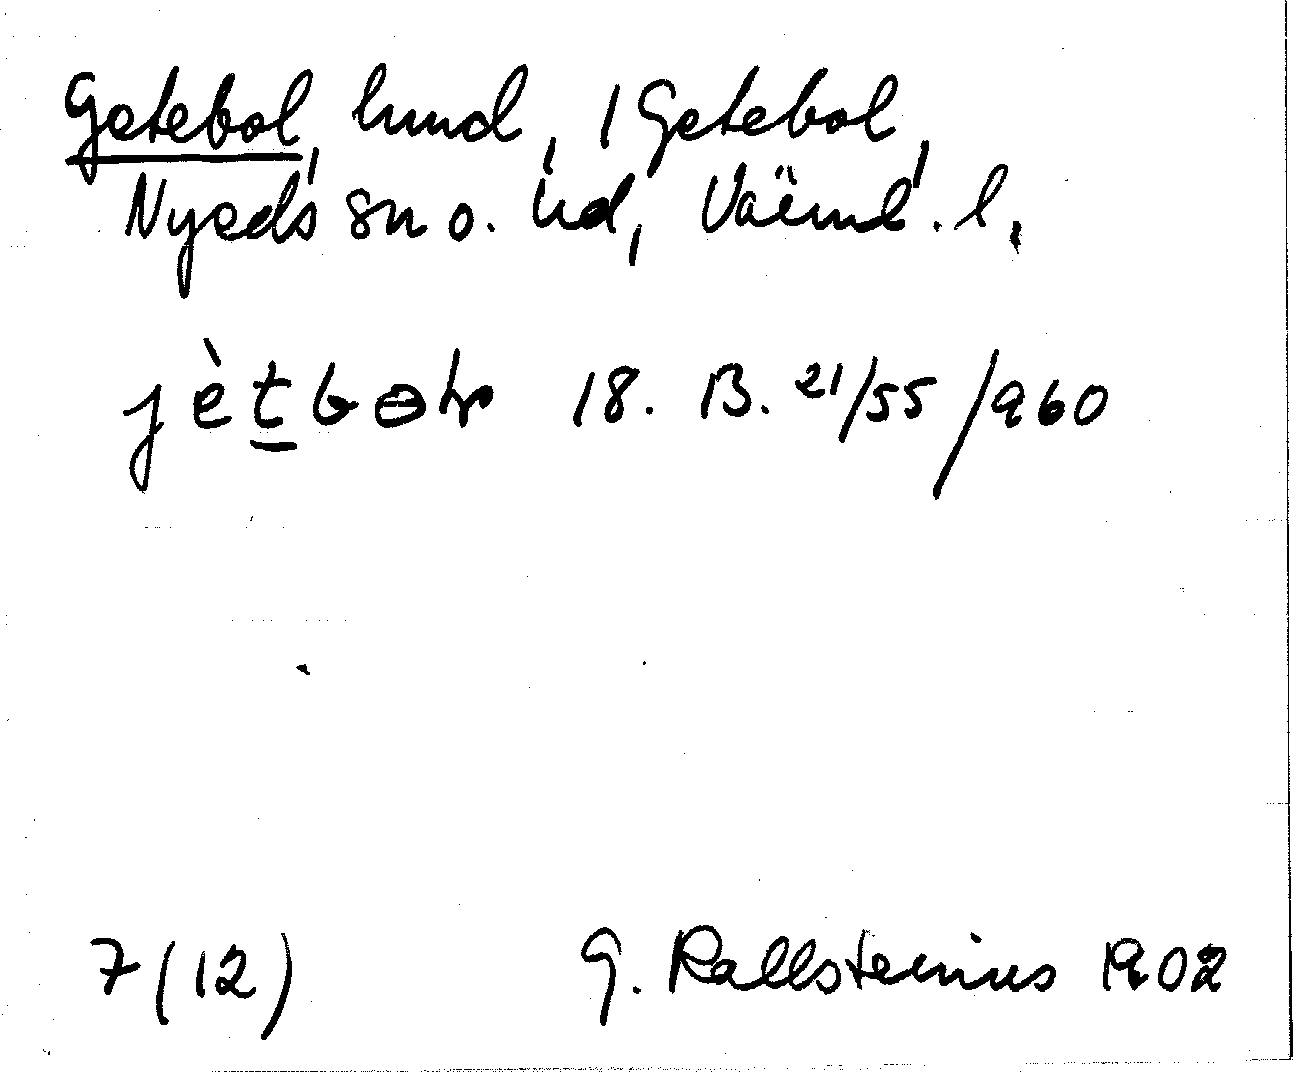 Getebol, hmd, i Getebol,
Nyeds sn o. hd, Värml. l.
jètbol 18. B. 21/55/960
7(12) G. Kallstenius 1902